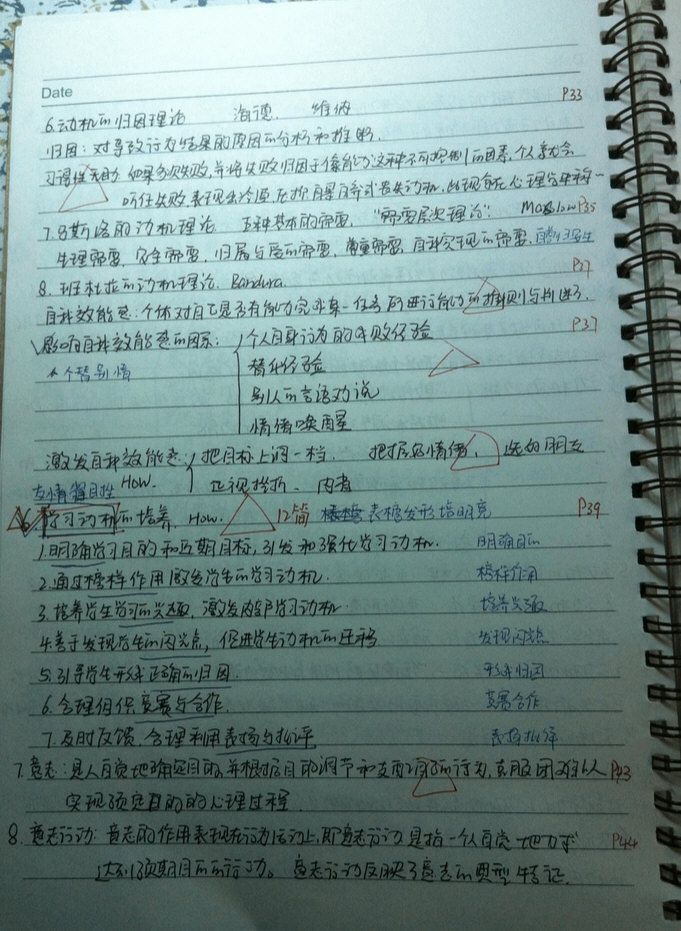 Date
6.动机的归因理论 海德. 维纳 P33
归因：对导致行为结果的原因的分析和推断.
习得性无助 如果多次失败,并将失败归因于像能力这种不可控制的因素,个人就会
听任失败,表现出冷漠 自暴自弃式丧失动机,此现象在心理学中称—
7.马斯洛的动机理论 五种基本的需要, "需要层次理论". Maslow P35
生理需要、安全需要、归属与爱的需要、尊重需要、自我实现的需要.
8.班杜拉的动机理论. Bandura. P37
自我效能感:个体对自己是否有能力完成某一任务所进行能力的推测与判断.
影响自我效能感的因素: 个人自身行为的成败经验 P37
个替别情 替代经验
别人的言语劝说
情绪唤醒
激发自我效能感: 把目标上调一档. 把握好情绪, 选好朋友
How. 正视挫折.
学习动机的培养, How. 12简 P39
1.明确学习目的和近期目标,引发和强化学习动机. 明确目的
2.通过榜样作用激发学生的学习动机. 榜样作用
3.培养学生学习的兴趣,激发内部学习动机. 培养兴趣
4.善于发现学生的闪光点,促进学生动机的迁移 发现闪点
5.引导学生形成正确的归因. 形成归因
6.合理组织竞赛与合作. 竞赛合作
7.及时反馈,合理利用表扬与批评 表扬批评
7.意志:是人自觉地确定目的,并根据目的调节和支配自己的行为,克服困难以 P43
实现预定目的的心理过程.
8.意志行动:意志的作用表现在行动活动上,即意志行动是指一个人自觉地力求 P44
达到预期目的的行动。意志行动反映了意志的典型特征.